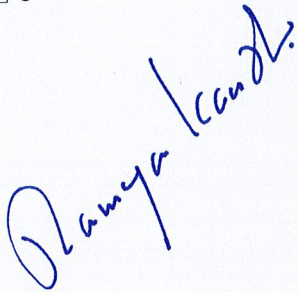 Ramya Kanth.